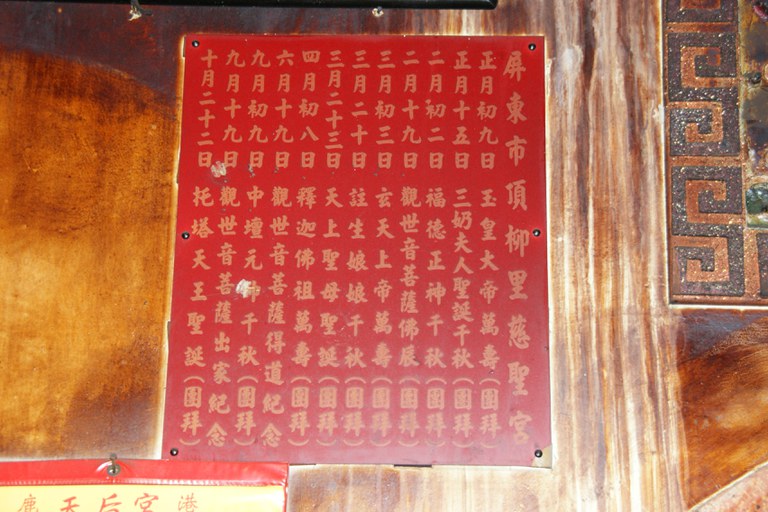 屏東市頂柳里慈聖宮
正月初九日 玉皇大帝萬壽(團拜)
正月十五日 三奶夫人聖誕千秋(團拜)
二月初二日 福德正神千秋(團拜)
二月十九日 觀世音菩薩佛辰(團拜)
三月初三日 玄天上帝萬壽(團拜)
三月二十日 註生娘娘千秋(團拜)
三月二十三日 天上聖母聖誕(團拜)
四月初八日 釋迦佛祖萬壽(團拜)
六月十九日 觀世音菩薩得道紀念
九月初九日 中壇元帥千秋(團拜)
九月十九日 觀世音菩薩出家紀念
十月二十二日 托塔天王聖誕(團拜)
鹿 天后宮 港